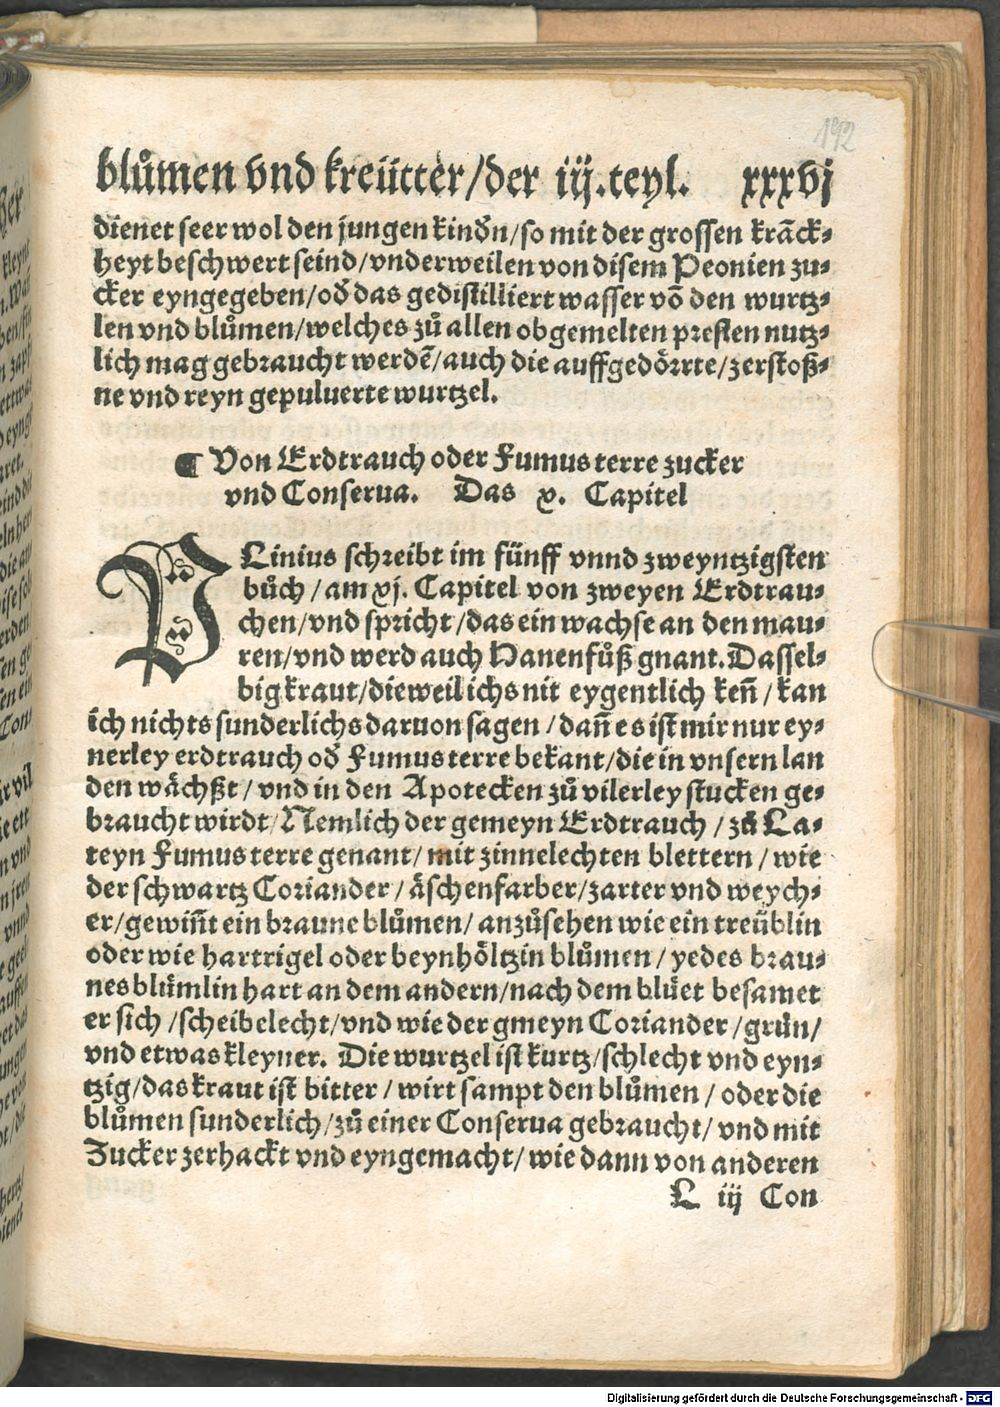 192
blůmen vnd kreütter/der iij.teyl. xxxvj
dienet seer wol den jungen kindn̄/so mit der grossen krāck-
heyt beschwert seind/vnderweilen von disem Peonien zu-
cker eyngegeben/od̄ das gedistilliert wasser vō den wurtz-
len vnd blůmen/welches zů allen obgemelten presten nutz-
lich mag gebraucht werdē/auch die auffgedörrte/zerstoß-
ne vnd reyn gepuluerte wurtzel.
¶ Von Erdtrauch oder Fumus terre zucker
vnd Conserua. Das x. Capitel
PLinius schreibt im fünff vnnd zweyntzigsten
bůch/am xj. Capitel von zweyen Erdtrau-
chen/vnd spricht/das ein wachse an den mau-
ren/vnd werd auch Hanenfůß gnant. Dassel-
big kraut/dieweil ichs nit eygentlich keñ/kan
ich nichts sunderlichs daruon sagen/dañ es ist mir nur ey-
nerley erdtrauch od̄ Fumus terre bekant/die in vnsern lan
den wächßt/vnd in den Apotecken zů vilerley stucken ge-
braucht wirdt/Nemlich der gemeyn Erdtrauch/zů La-
teyn Fumus terre genant/mit zinnelechten blettern/wie
der schwartz Coriander/äschenfarber/zarter vnd weych-
er/gewiñt ein braune blůmen/anzůsehen wie ein treüblin
oder wie hartrigel oder beynhöltzin blůmen/yedes brau-
nes blümlin hart an dem andern/nach dem blůet besamet
er sich/scheibelecht/vnd wie der gmeyn Coriander/grün/
vnd etwas kleyner. Die wurtzel ist kurtz/schlecht vnd eyn-
tzig/das kraut ist bitter/wirt sampt den blůmen/oder die
blůmen sunderlich/zů einer Conserua gebraucht/vnd mit
Zucker zerhackt vnd eyngemacht/wie dann von anderen
L iij Con
Digitalisierung gefördert durch die Deutsche Forschungsgemeinschaft - DFG